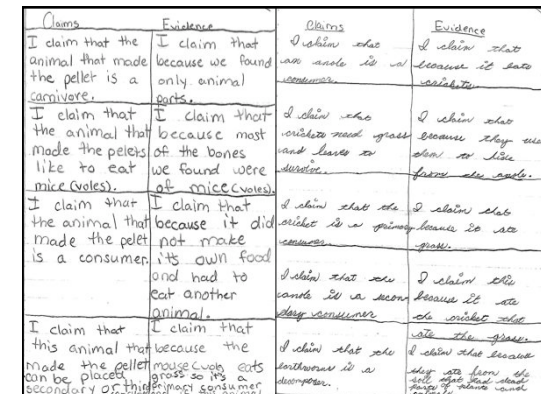 Claims
Evidence
I claim that the
animal that made
the pellet is a
carnivore.
I claim that
because we found
only animal
parts.
I claim that
the animal that
made the pelets
like to eat
mice (voles).
I claim that
because most
of the bones
we found were
of mice (voles).
I claim that
the animal that
made the pelet
is a consumer.
I claim that
because it did
not make
it's own food
and had to
eat another
animal.
I claim that
this animal that
made the pellet
can be placed
secondary or third
I claim that
because the
mouse (vole) eats
grass so it's a
primary consumer
Claims
Evidence
I claim that
an anole is a
consumer.
I claim that
because it eats
crickets.
I claim that
crickets need grass
and leaves to
survive.
I claim that
because they use
them to hide
from the anole.
I claim that the
cricket is a primary
consumer
I claim that
because it ate
grass.
I claim that the
anole is a secon
dary consumer
I claim this
because it ate
the cricket that
ate the grass.
I claim that the
earthworm is a
decomposer.
I claim that because
they eat from the
soil that had dead
parts of plants and